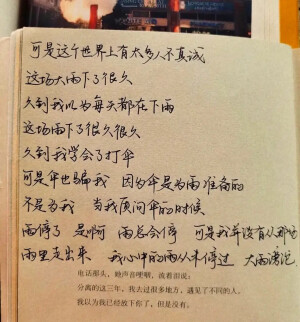 可是这个世界上有太多人不真诚
这场大雨下了很久
久到我以为每天都在下雨
这场雨下了很久很久
久到我学会了打伞
可是伞也骗我 因为伞是为雨准备的
不是为我 当我质问伞的时候
雨停了 是啊 雨总会停 可是我并没有从那场
雨里走出来 我心中的雨从未停过 大雨滂沱
电话那头，她声音哽咽，流着泪说：
分离的这三年，我去过很多地方，遇见了不同的人，
我以为我已经放下你了，但是没有。